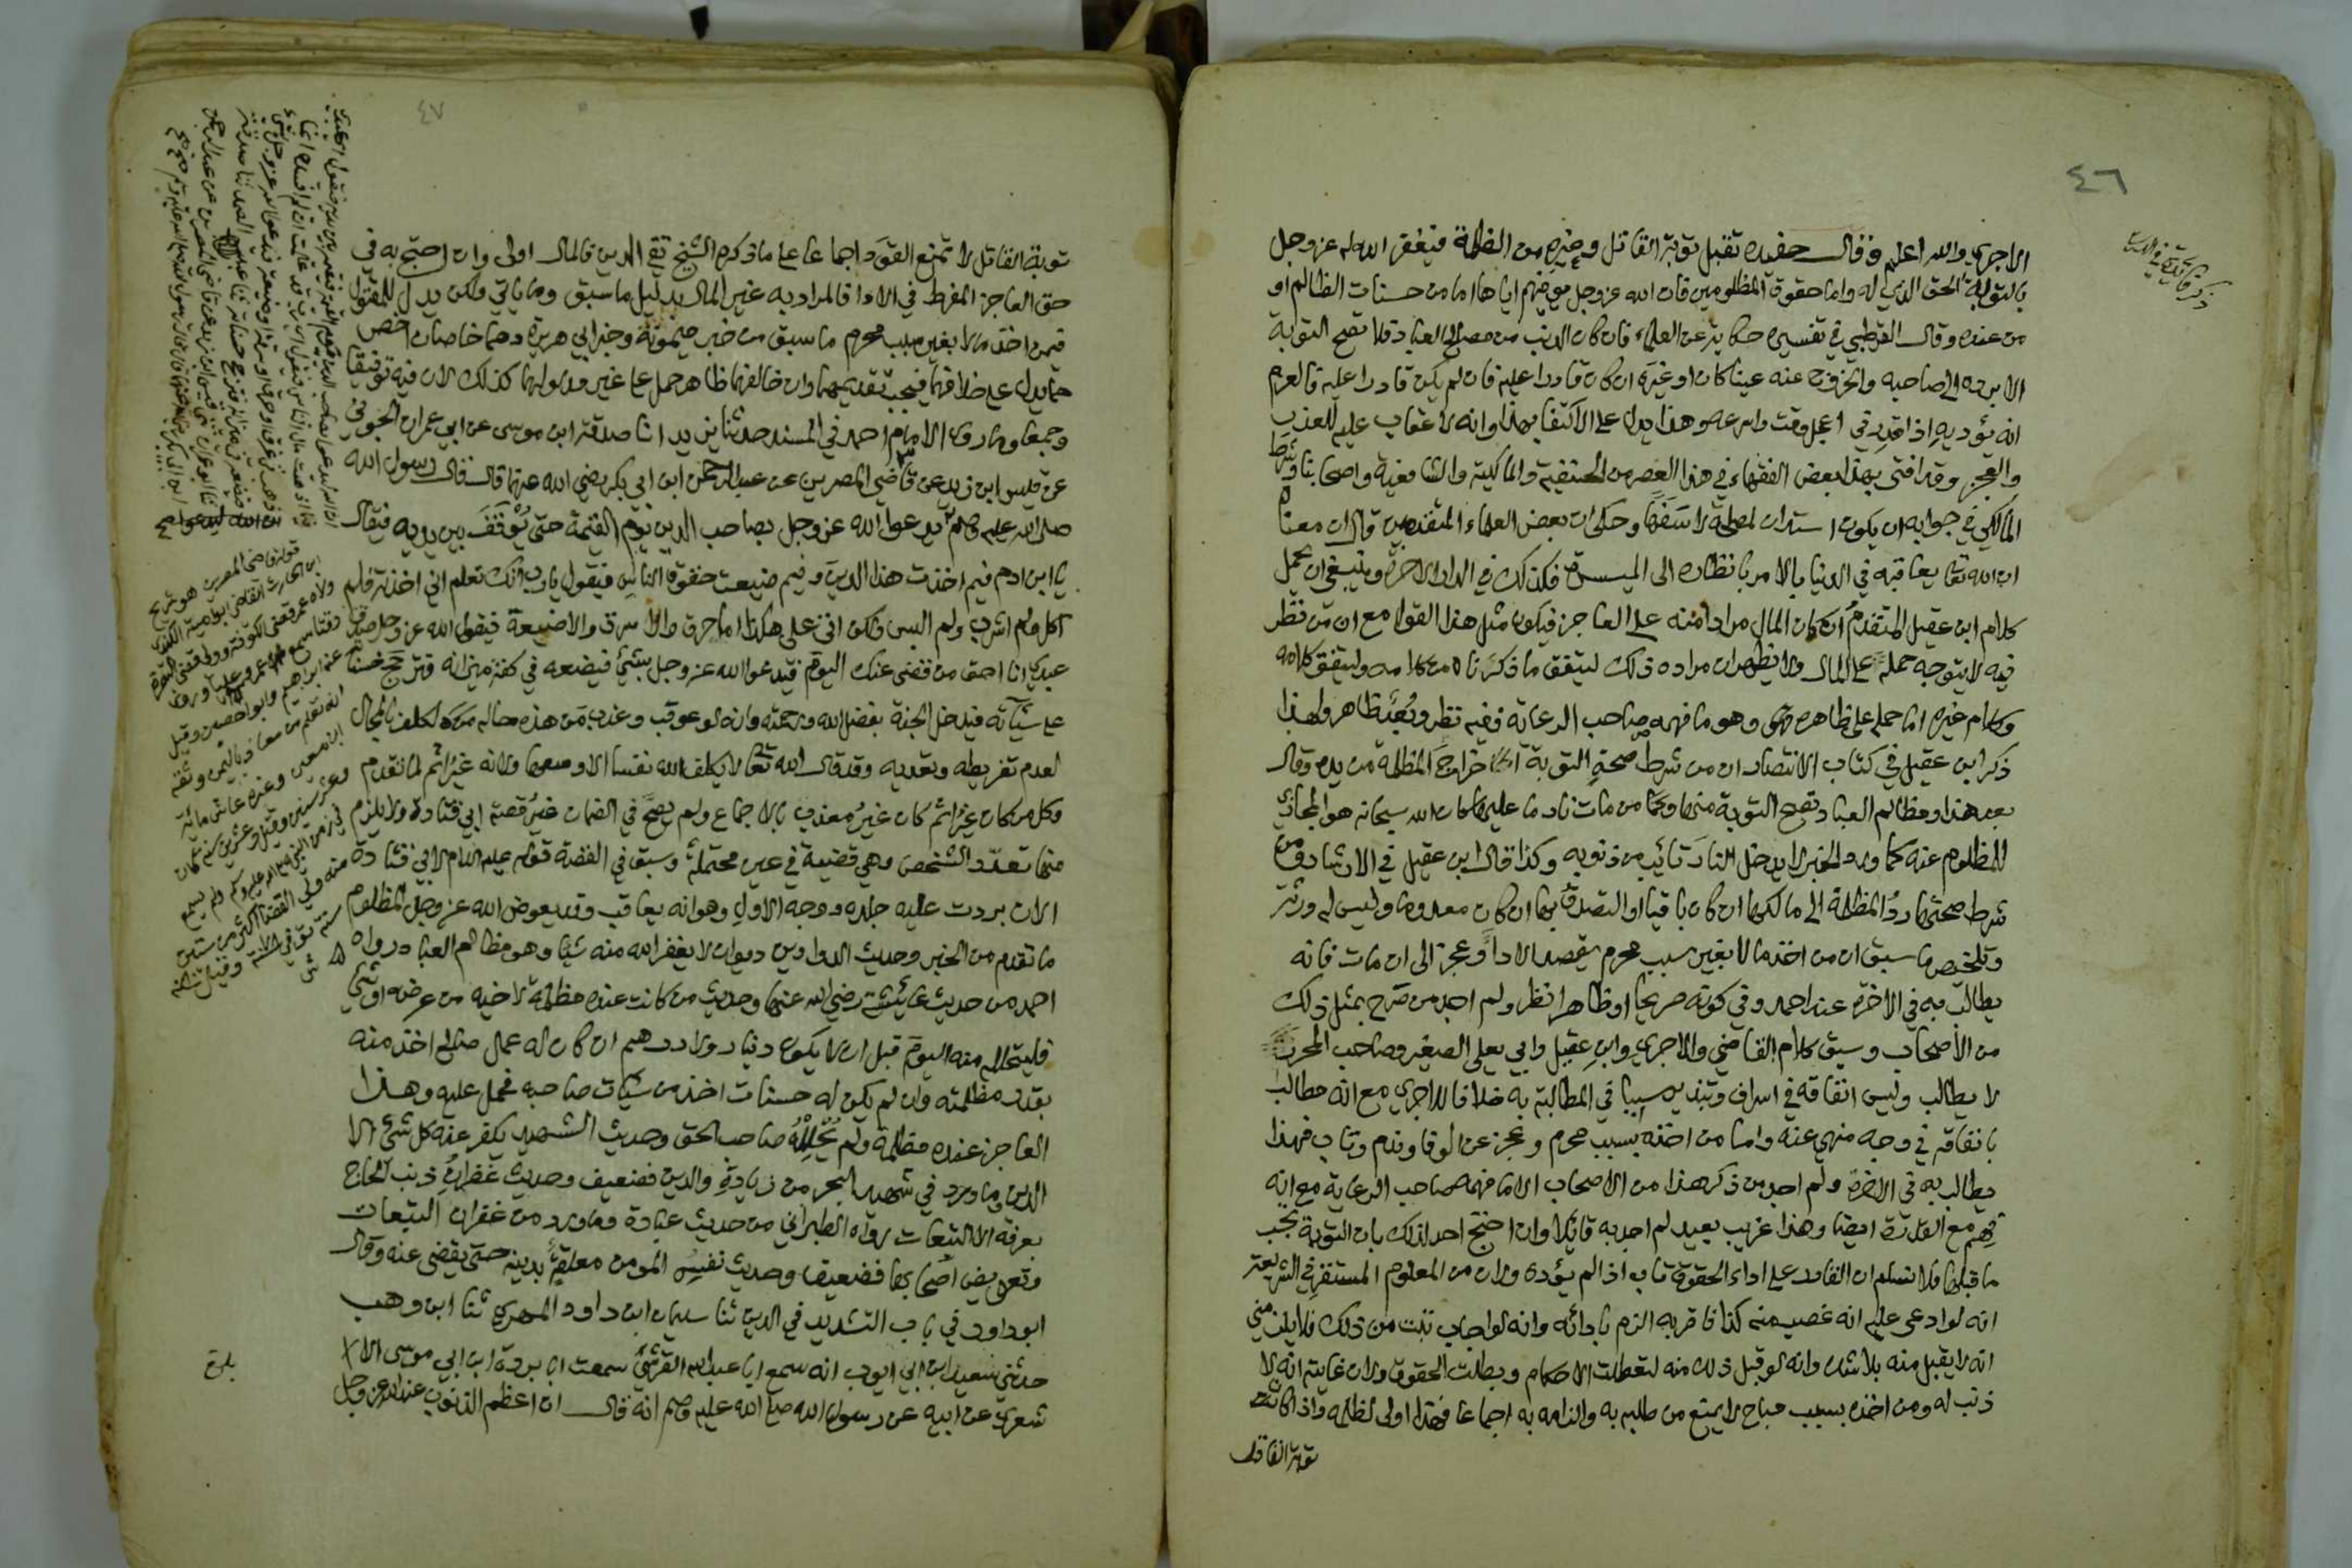 ٤٦
الاجري والله اعلم وقال حفيده تقبل توبة القاتل وغيره من الظلمة فيغفر الله له عز وجل
بالتوبة الحق الذي له واما حقوق المظلومين فان الله عز وجل يوفيهم اياها اما من حسنات الظالم او
من عنده وقال القرطبي في تفسيره حكاية عن العلماء فان كان الذنب من مصالح العباد فلا تصح التوبة
الا برده الى صاحبه والخروج عنه عينا كان او غيره ان كان قادرا عليه فان لم يكن قادرا عليه فالعزم
انه يؤديه اذا قدر في اعجل وقت واسرعه وهذا يدل على الاكتفا بهذا وانه لا عقاب عليه للعذر
والعجز وقد افتى بهذا بعض الفقهاء في هذا العصر من الحنفية والمالكية والشافعية واصحابنا وشرط
المالكي في جوابه ان يكون استدان لمصلحة لا سفها وحكى ان بعض العلماء المتقدمين قال ان معناه
ان الله تعا يعاقبه في الدنيا بالامر بانظاره الى الميسرة فكذلك في الدار الاخرة وينبغي ان يحمل
كلام ابن عقيل المتقدم ان كان المال مرادا منه على العاجز فيكون مثل هذا القول مع ان من نظر
فيه لا يتوجه حمله على المال ولا يظهر ان مراده ذلك ليتفق ما ذكرناه من كلامه وليتفق كلامه
وكلام غيره اما حمله على ظاهره وهو ما فهمه صاحب الرعاية ففيه نظر وبعد ظاهر ولهذا
ذكر ابن عقيل في كتاب الانتصار ان من شرط صحة التوبة اخراج المظلمة من يده وقال
بعد هذا ومظالم العباد تصح التوبة منها ومن مات نادما عليها كان الله سبحانه هو المجازي
للمظلوم عنه كما ورد الخبر لا يدخل النار تائب من ذنوبه وكذا قال ابن عقيل في الارشاد ومن
شرط صحتها رد المظلمة الى مالكها ان كان باقيا او التصدق بها ان كان معدوما وليس له ورثة
وتلخص ما سبق ان من اخذ مالا بغير سبب محرم يقصد الاداء وعجز الى ان مات فانه
يطالب به في الاخرة عند احمد وفي كونه صريحا او ظاهرا نظر ولم اجد من صرح بمثل ذلك
من الأصحاب وسبق كلام القاضي والاجري وابن عقيل وابي يعلى الصغير وصاحب المحرر
لا يطالب وليس انفاقه في اسراف وتبذير سببا في المطالبة به خلافا للاجري مع انه مطالب
بانفاقه في وجه منهي عنه واما من اخذه بسبب محرم وعجز عن الوفا وندم وتاب فهذا
يطالب به في الاخرة ولم اجد من ذكر هذا من الاصحاب الا ما فهمه صاحب الرعاية مع انه
فهم مع القدرة ايضا وهذا غريب بعيد لم اجد به قائلا وان احتج احد لذلك بان التوبة تجب
ما قبلها فلا نسلم ان القادر على اداء الحقوق تاب اذا لم يؤده ولان من المعلوم المستقر في الشريعة
انه لو ادعى عليه انه غصب منه كذا فاقر به الزم بادائه وانه لو اجاب تبت من ذلك فلا يلزمني
انه لا يقبل منه بلا شك وانه لو قبل ذلك منه لتعطلت الاحكام وبطلت الحقوق ولان غايته انه لا
ذنب له ومن اخذه بسبب مباح لا يمنع من طلبه به والزامه به اجماعا فهذا اولى لظلمه واذا كانت
توبة القاتل
٤٧
توبة القاتل لا تمنع القود اجماعا على ما ذكره الشيخ تقي الدين فالمال اولى وان احتج به في
حق العاجز المفرط في الاداء فالمراد به غير المال بدليل ما سبق وما ياتي ولكن يدل للمقتول
فيمن اخذ مالا بغير سبب محرم ما سبق من خبر ميمونة وخبر ابي هريرة وهما خاصان اخص
مما يدل على خلافهما فيجب تقديمهما وان خالفهما ظاهر حمل على غير مدلولهما كذلك لان فيه توفيقا
وجمعا وما روى الامام احمد في المسند حدثنا يزيد انا صدقة ابن موسى عن ابي عمران الجوني
عن قيس ابن زيد عن قاضي المصرين عن عبد الرحمن ابن ابي بكر رضي الله عنهما قال قال رسول الله
صلى الله عليه وسلم يدعو الله عز وجل بصاحب الدين يوم القيمة حتى يوقف بين يديه فيقال
يا ابن ادم فيم اخذت هذا الدين وفيم ضيعت حقوق الناس فيقول يا رب انك تعلم اني اخذته فلم
اكل ولم اشرب ولم البس ولكن اتى على هكذا اما حرق واما سرق واما ضيعة فيقول الله عز وجل صدق
عبدي انا احق من قضى عنك اليوم فيدعو الله عز وجل بشيء فيضعه في كفة ميزانه فترجح حسناته
على سيئاته فيدخل الجنة بفضل الله ورحمته وانه لو عوقب وعذب من هذه حاله لكلف بالمحال
لعدم تفريطه وتعديه وقد قال الله تعا لا يكلف الله نفسا الا وسعها ولانه غير اثم لما تقدم
وكل من كان غير اثم كان غير معذب بالاجماع ولم يصح في الضمان غير قصة ابي قتادة ولا يلزم
منها تعدد الشخص وهي قضية في عين محتملة وسبق في القصة قوله عليه السلام لابي قتادة
الان بردت عليه جلده ووجه الاول وهو انه يعاقب وقد يعوض الله عز وجل المظلوم
ما تقدم من الخبر وحديث الدواوين ديوان لا يغفر الله منه شيا وهو مظالم العباد رواه
احمد من حديث عائشة رضي الله عنها وحديث من كانت عنده مظلمة لاخيه من عرضه او شيء
فليتحلله منه اليوم قبل ان لا يكون دينار ولا درهم ان كان له عمل صالح اخذ منه
بقدر مظلمته وان لم يكن له حسنات اخذ من سيئات صاحبه فحمل عليه وهذا
العاجز عنده مظلمة ولم يحلله صاحب الحق وحديث الشهيد يكفر عنه كل شئ الا
الدين وما ورد في شهيد البحر من زيادة والدين فضعيف وحديث غفران ذنب الحاج
بعرفة الا التبعات رواه الطبراني من حديث عبادة وما ورد من غفران التبعات
وتعويض اصحابها فضعيف وحديث نفس المومن معلقة بدينه حتى يقضى عنه وقال
ابو داود في باب التشديد في الدين ثنا سليمان ابن داود المهري ثنا ابن وهب
حدثني سعيد ابن ابي ايوب انه سمع ابا عبد الله القرشي سمعت ابا بردة ابن ابي موسى الا
شعري عن ابيه عن رسول الله صلى الله عليه وسلم انه قال ان اعظم الذنوب عند الله عز وجل
قوله قاضي المصرين هو شريح
ابن الحارث القاضي ابو امية الكندي